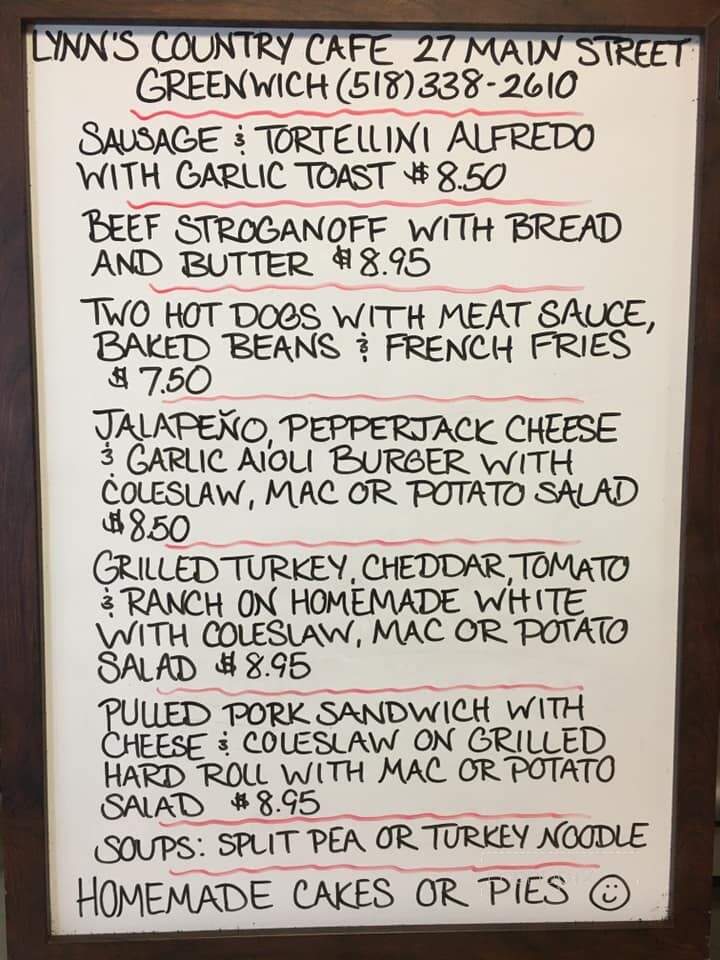 LYNN'S COUNTRY CAFE 27 MAIN STREET
GREENWICH (518) 338-2610
SAUSAGE & TORTELLINI ALFREDO
WITH GARLIC TOAST $8.50
BEEF STROGANOFF WITH BREAD
AND BUTTER $8.95
TWO HOT DOGS WITH MEAT SAUCE,
BAKED BEANS & FRENCH FRIES
$7.50
JALAPEÑO, PEPPERJACK CHEESE
& GARLIC AIOLI BURGER WITH
COLESLAW, MAC OR POTATO SALAD
$8.50
GRILLED TURKEY, CHEDDAR, TOMATO
& RANCH ON HOMEMADE WHITE
WITH COLESLAW, MAC OR POTATO
SALAD $8.95
PULLED PORK SANDWICH WITH
CHEESE & COLESLAW ON GRILLED
HARD ROLL WITH MAC OR POTATO
SALAD $8.95
SOUPS: SPLIT PEA OR TURKEY NOODLE
HOMEMADE CAKES OR PIES ☺